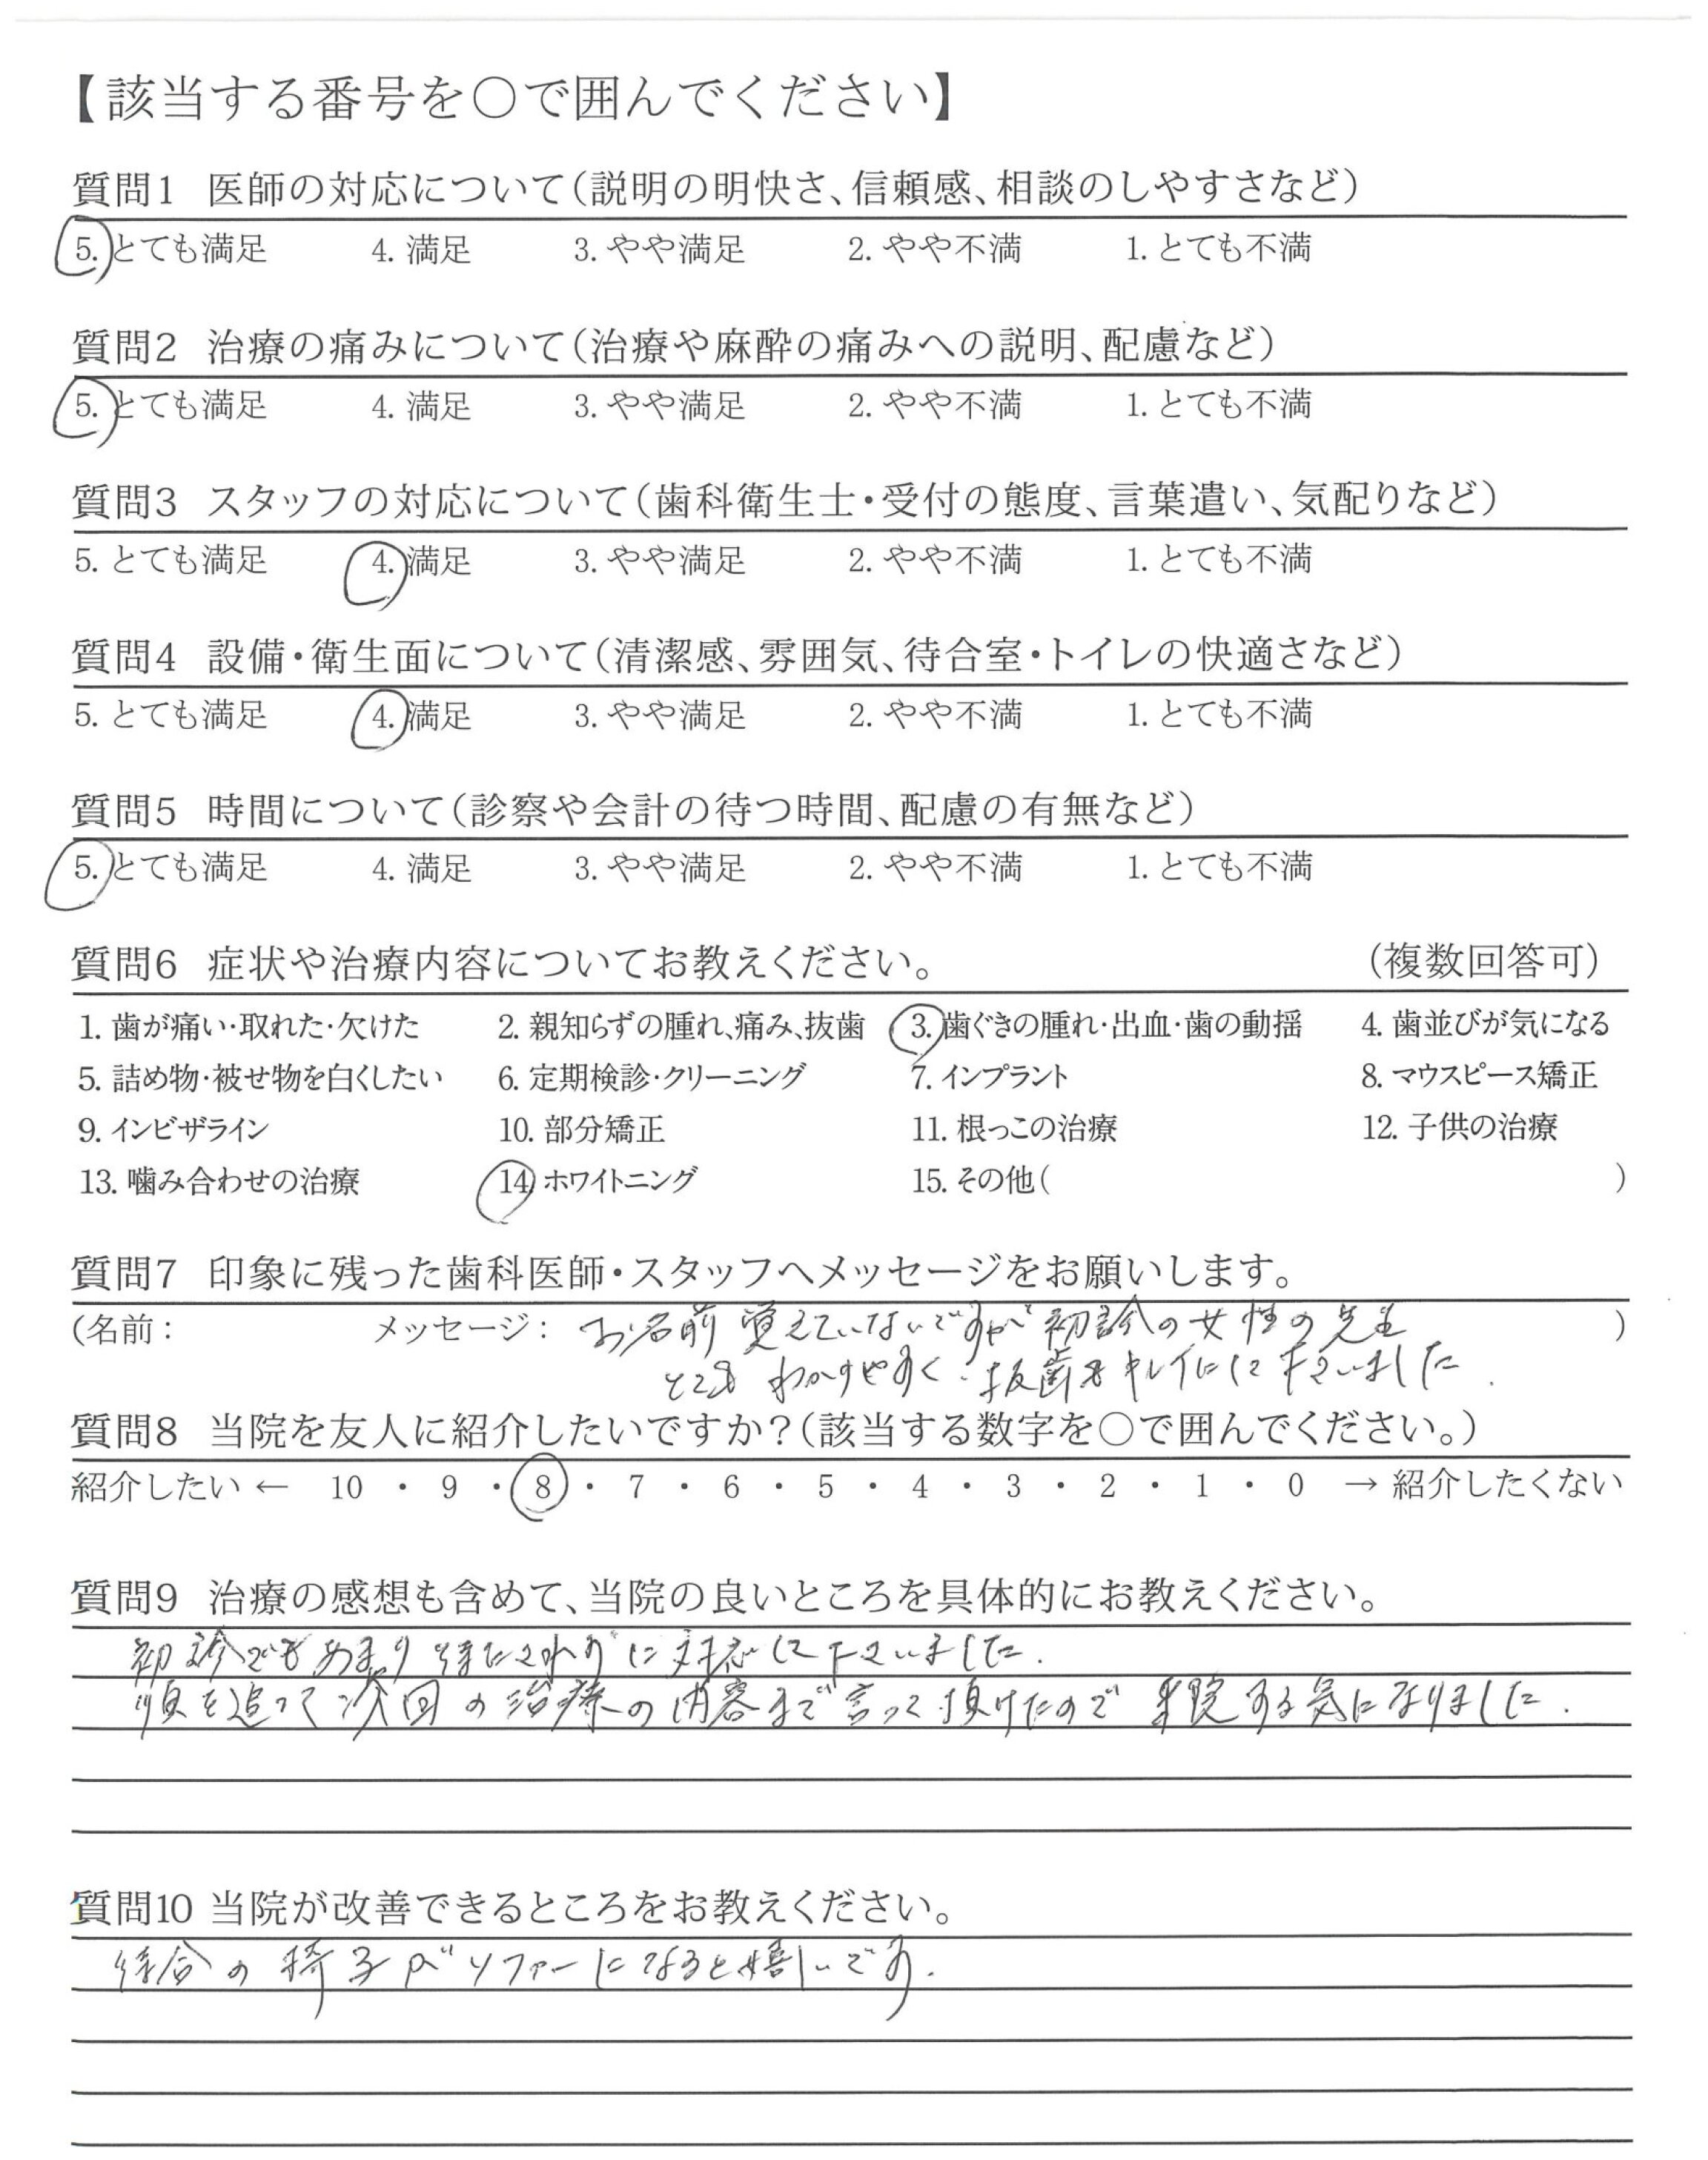 【該当する番号を○で囲んでください】
質問1 医師の対応について(説明の明快さ、信頼感、相談のしやすさなど)
5. とても満足 4. 満足 3. やや満足 2. やや不満 1. とても不満
質問2 治療の痛みについて(治療や麻酔の痛みへの説明、配慮など)
5. とても満足 4. 満足 3. やや満足 2. やや不満 1. とても不満
質問3 スタッフの対応について(歯科衛生士・受付の態度、言葉遣い、気配りなど)
5. とても満足 4. 満足 3. やや満足 2. やや不満 1. とても不満
質問4 設備・衛生面について(清潔感、雰囲気、待合室・トイレの快適さなど)
5. とても満足 4. 満足 3. やや満足 2. やや不満 1. とても不満
質問5 時間について(診察や会計の待つ時間、配慮の有無など)
5. とても満足 4. 満足 3. やや満足 2. やや不満 1. とても不満
質問6 症状や治療内容についてお教えください。 (複数回答可)
1. 歯が痛い・取れた・欠けた 2. 親知らずの腫れ、痛み、抜歯 3. 歯ぐきの腫れ・出血・歯の動揺 4. 歯並びが気になる
5. 詰め物・被せ物を白くしたい 6. 定期検診・クリーニング 7. インプラント 8. マウスピース矯正
9. インビザライン 10. 部分矯正 11. 根っこの治療 12. 子供の治療
13. 噛み合わせの治療 14. ホワイトニング 15. その他( )
質問7 印象に残った歯科医師・スタッフへメッセージをお願いします。
(名前: メッセージ: お名前覚えていないですが初診の女性の先生 )
とても わかりやすく 抜歯も キレイにして下さいました.
質問8 当院を友人に紹介したいですか?(該当する数字を○で囲んでください。)
紹介したい ← 10 ・ 9 ・ 8 ・ 7 ・ 6 ・ 5 ・ 4 ・ 3 ・ 2 ・ 1 ・ 0 → 紹介したくない
質問9 治療の感想も含めて、当院の良いところを具体的にお教えください。
初診でもあまり待たされずに対応して下さいました.
順を追って次回の治療の内容まで言って頂けたので 来院する気になりました.
質問10 当院が改善できるところをお教えください。
待合の椅子がソファーになると嬉しいです.